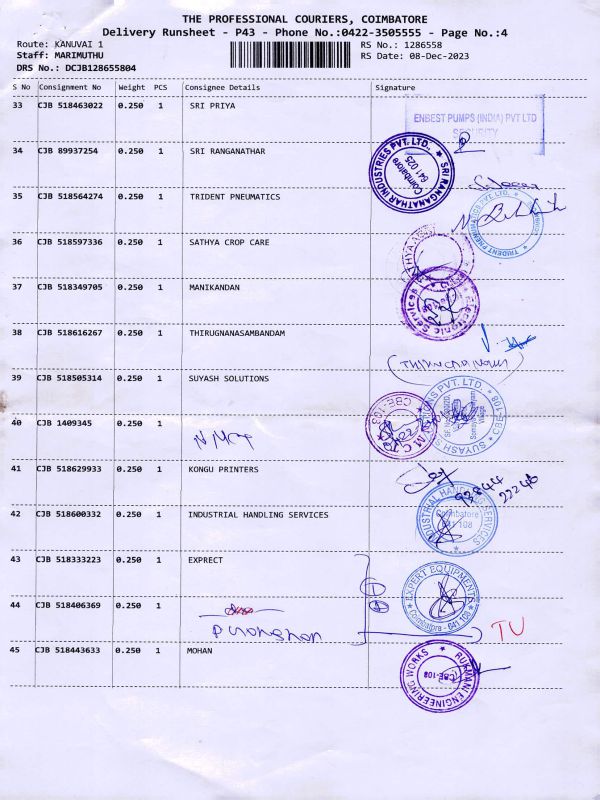 THE PROFESSIONAL COURIERS, COIMBATORE
Delivery Runsheet - P43 - Phone No.:0422-3505555 - Page No.:4
Route: KANUVAI 1
Staff: MARIMUTHU
DRS No.: DCJB128655804
RS No.: 1286558
RS Date: 08-Dec-2023
S No Consignment No Weight PCS Consignee Details Signature
33 CJB 518463022 0.250 1 SRI PRIYA
ENBEST PUMPS (INDIA) PVT LTD
SECURITY
34 CJB 89937254 0.250 1 SRI RANGANATHAR
SRI RANGANATHAR INDUSTRIES PVT. LTD.,
Coimbatore
641 025
35 CJB 518564274 0.250 1 TRIDENT PNEUMATICS
TRIDENT PNEUMATICS PVT. LTD.
36 CJB 518597336 0.250 1 SATHYA CROP CARE
37 CJB 518349705 0.250 1 MANIKANDAN
38 CJB 518616267 0.250 1 THIRUGNANASAMBANDAM
39 CJB 518505314 0.250 1 SUYASH SOLUTIONS
40 CJB 1409345 0.250 1
NMCT
CBE-108
41 CJB 518629933 0.250 1 KONGU PRINTERS
93844
22246
42 CJB 518600332 0.250 1 INDUSTRIAL HANDLING SERVICES
INDUSTRIAL HANDLING SERVICES
Coimbatore
641 108
43 CJB 518333223 0.250 1 EXPRECT
EXPERT EQUIPMENTS
Coimbatore - 641 108
44 CJB 518406369 0.250 1
TV
45 CJB 518443633 0.250 1 MOHAN
RUKMANI ENGINEERING WORKS
CBE-108